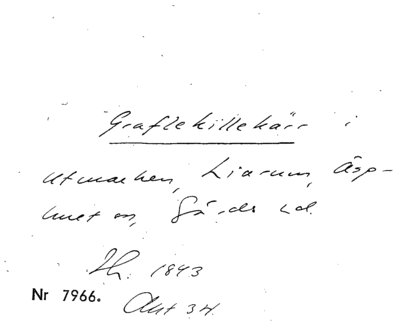 Graflekillekärr i
utmarken, Liarum, Äsp-
huset sn, Gärds hd.
Lh. 1843
Nr 7966. Akt 34.